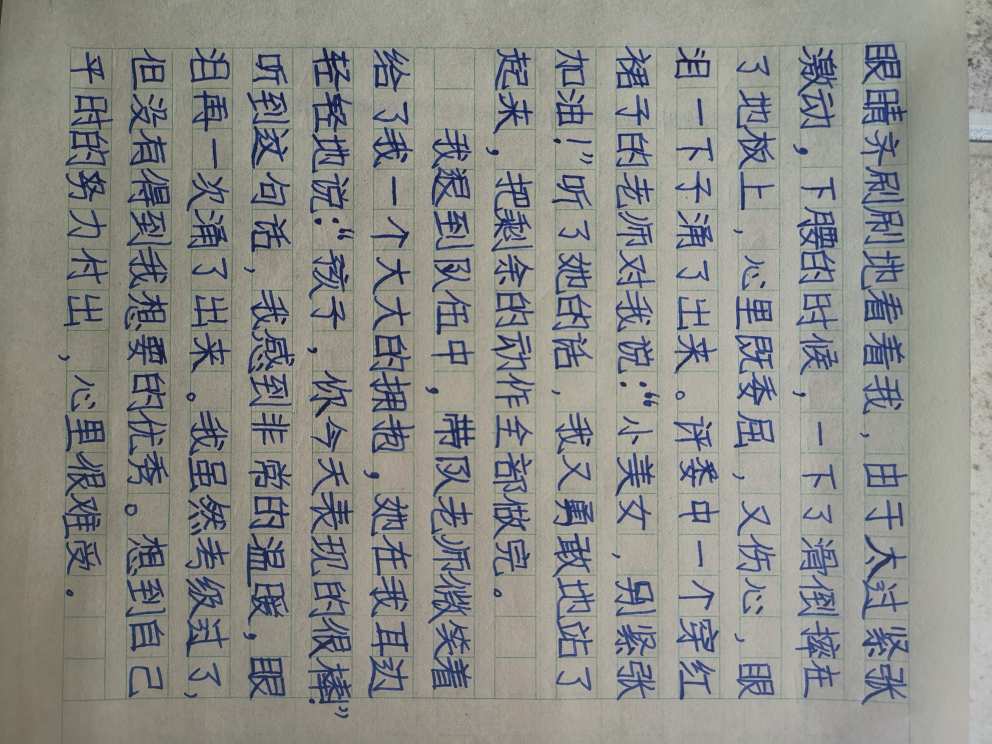 眼睛齐刷刷地看着我,由于大过紧张
激动,下腰的时候,一下了滑倒摔在
了地板上,心里既委屈,又伤心,眼
泪一下子涌了出来。评委中一个穿红
裙子的老师对我说:“小美女,别紧张
加油!”听了她的话,我又勇敢地站了
起来,把剩余的动作全部做完。
我退到队伍中,带队老师微笑着
给了我一个大大的拥抱,她在我耳边
轻轻地说:“孩子,你今天表现的很棒!”
听到这句话,我感到非常的温暖,眼
泪再一次涌了出来。我虽然考级过了,
但没有得到我想要的优秀。想到自己
平时的努力付出,心里很难受。